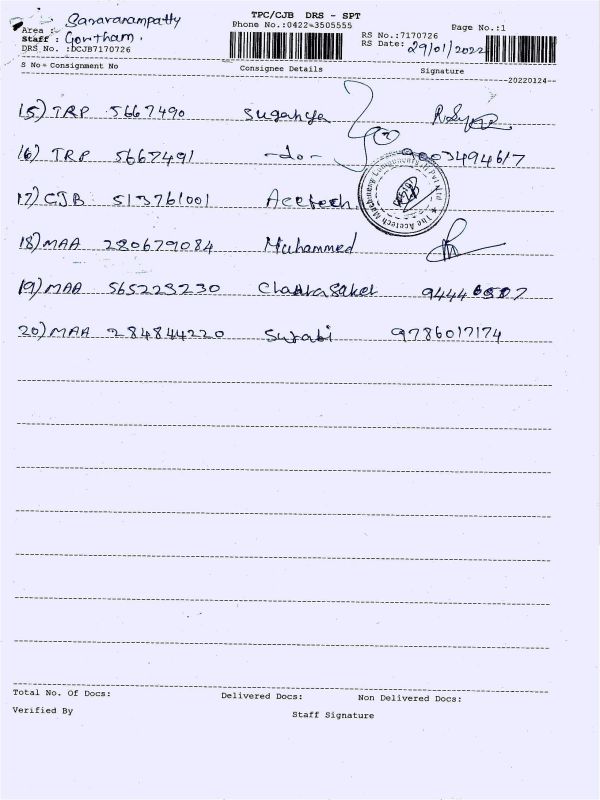 TPC/CJB DRS - SPT
Area : Saravanampatty
Phone No.:0422-3505555
Page No.:1
Staff : Gowtham.
RS No.:7170726
DRS No. :DCJB7170726
RS Date: 29/01/2022
S No- Consignment No Consignee Details Signature
20220124
15) TRP 5667490 Suganya
16) TRP 5667491 -do- 9003494617
17) CJB 513761001 Acetech
The Acetech Machinery Components
18) MAA 280679084 Muhammed
19) MAA 565228230 9444
20) MAA 284844220 Surabi 9786017174
Total No. Of Docs: Delivered Docs: Non Delivered Docs:
Verified By
Staff Signature